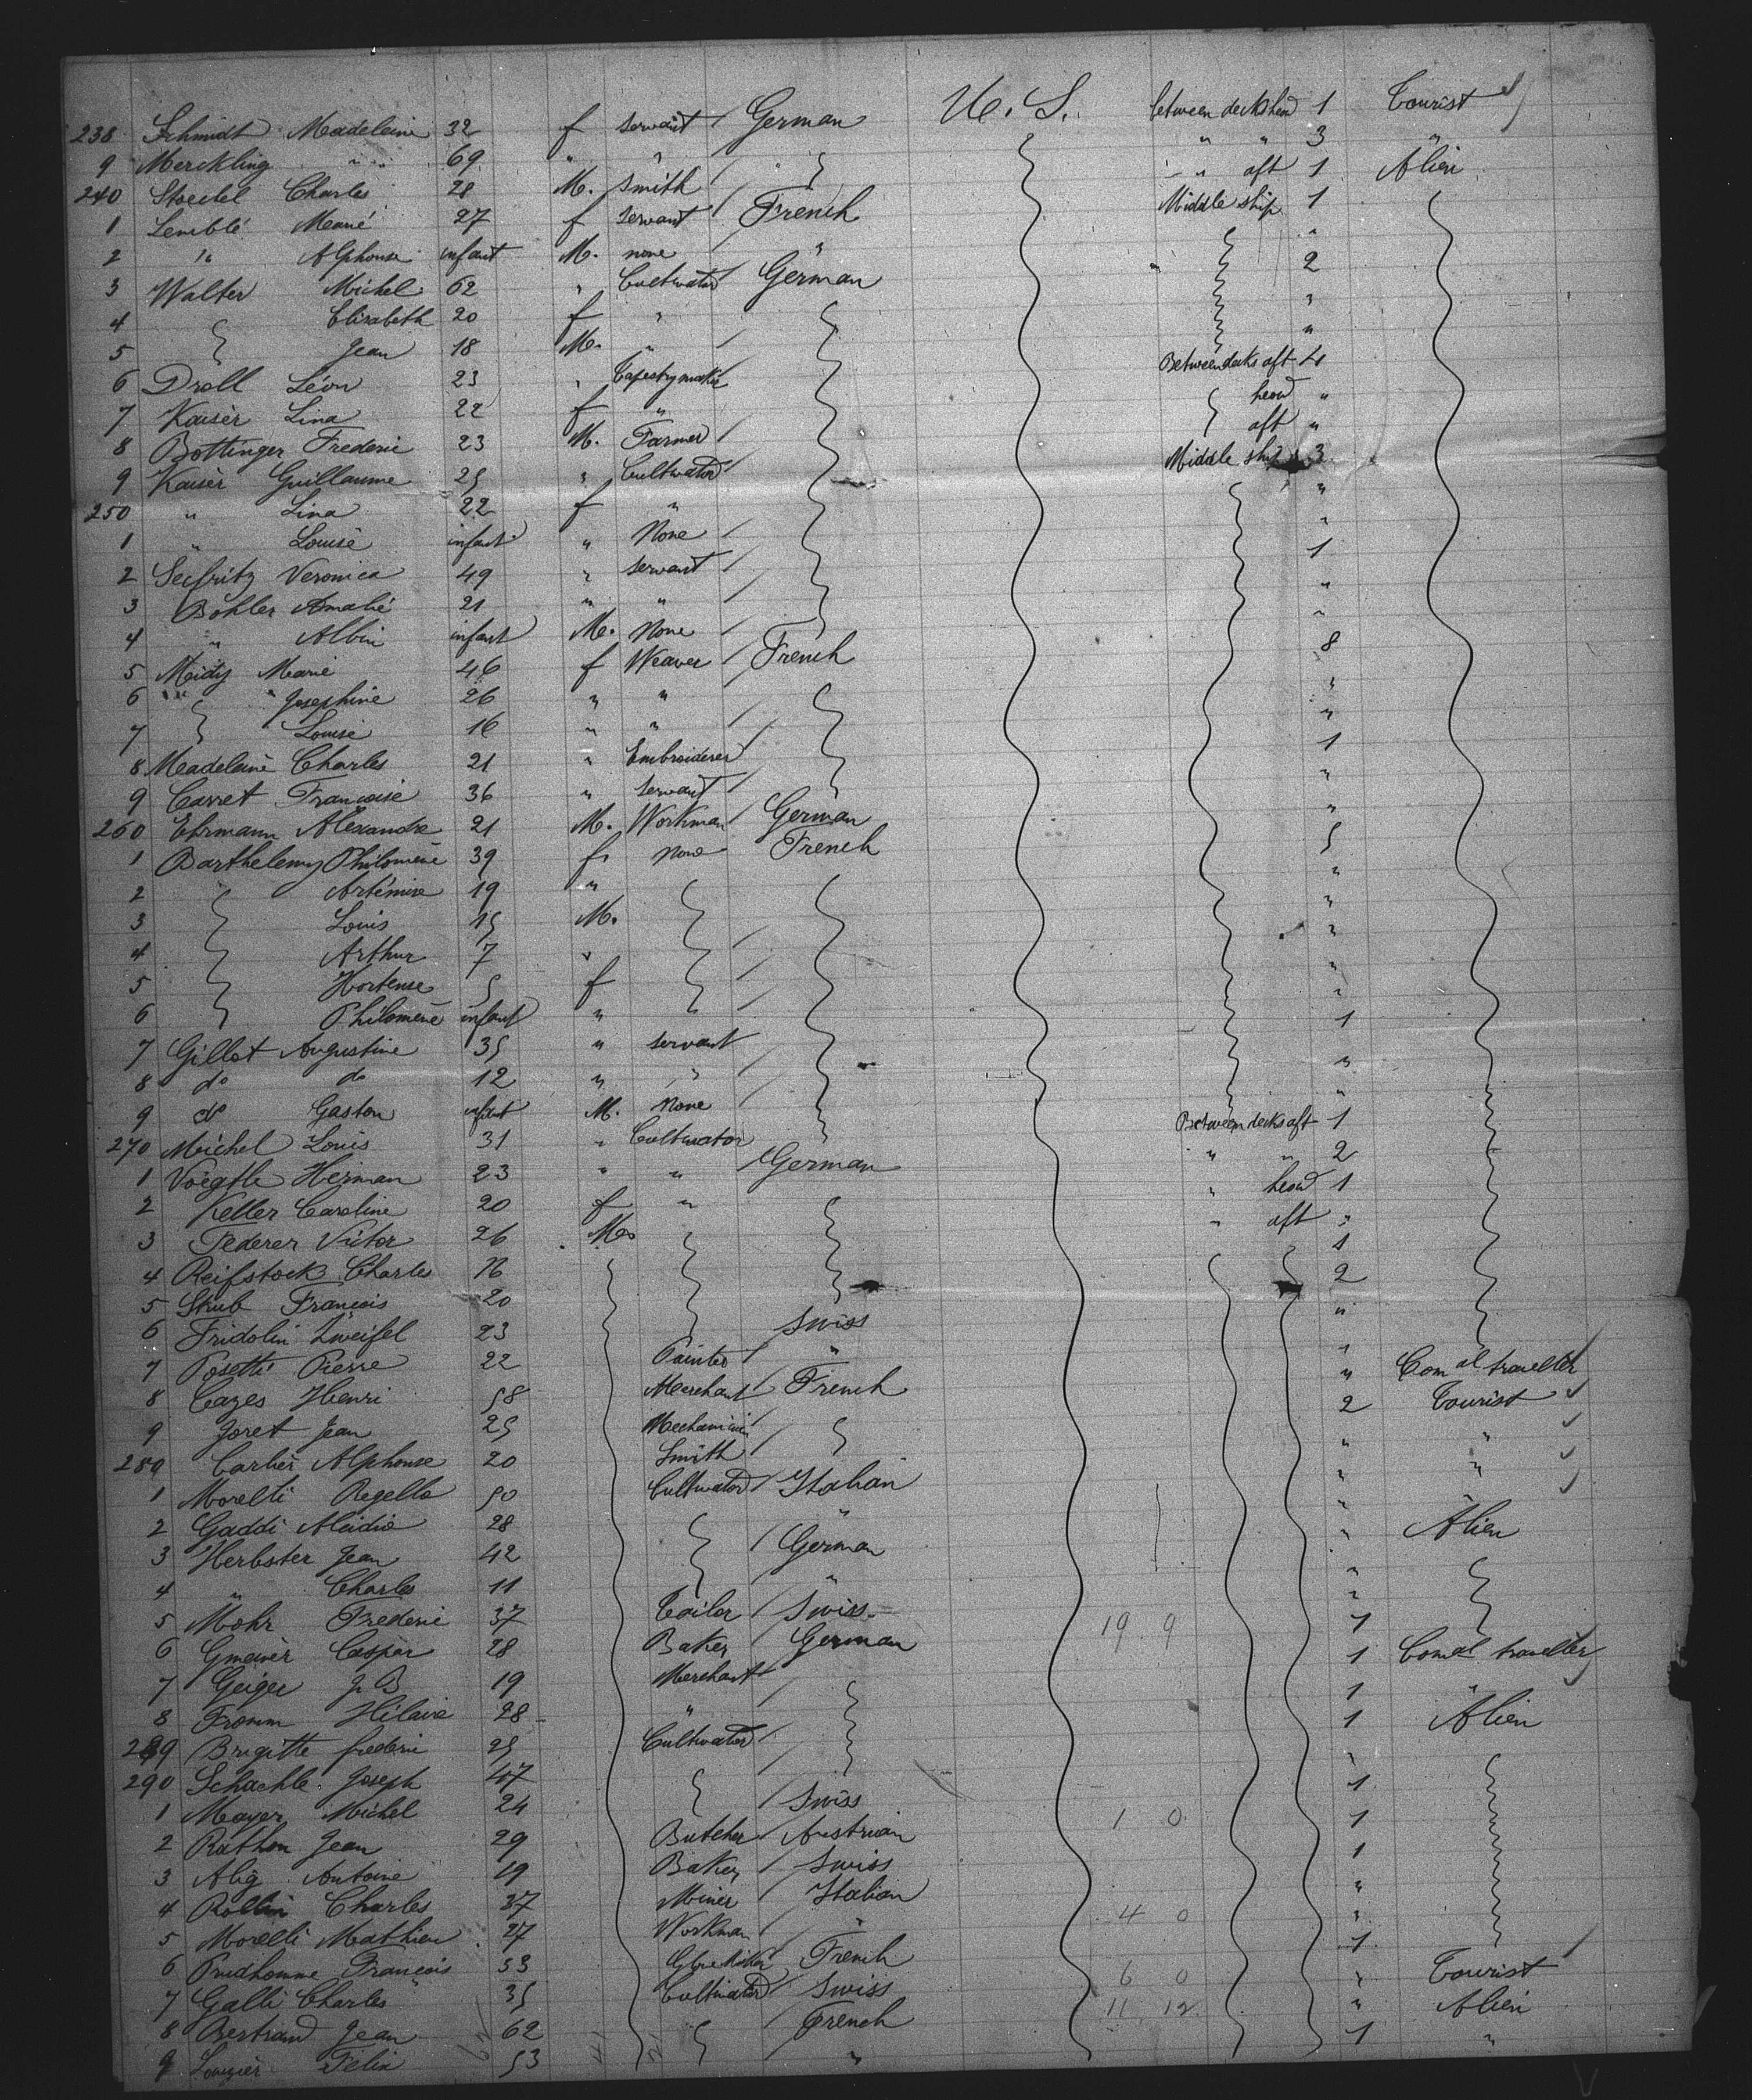 238 Schmidt Madeleine 32 f servant German U. S. between decks head 1 Tourist
9 Merckling " " 69 " " " " " 3 "
240 Stoeckel Charles 28 M. Smith " " aft 1 Alien
1 Lemblé Marie 27 f servant French Middle ship 1
2 " Alphonse infant M. none " "
3 Walter Michel 62 " Cultivator German 2
4 Elisabeth 20 f " "
5 Jean 18 M. " "
6 Droll Léon 23 " Tapestry maker Between decks aft 4
7 Kaiser Lina 22 f " head "
8 Bottinger Frederic 23 M. Farmer aft "
9 Kaiser Guillaume 25 " Cultivator Middle ship 3
250 " Lina 22 f " "
1 " Louise infant " None "
2 Seifritz Veronica 49 " servant 1
3 Bohler Amalie 21 " " "
4 " Albin infant M. None "
5 Meidy Marie 46 f Weaver French 8
6 " " Josephine 26 " " "
7 Louise 16 " " "
8 Madeleine Charles 21 " Embroiderer 1
9 Carret Francoise 36 " servant "
260 Ehrmann Alexandre 21 M. Workman German "
1 Barthelemy Philomene 39 f None French 5
2 Artémise 19 " "
3 Louis 15 M. "
4 Arthur 7 " "
5 Hortense 5 f "
6 Philomène infant " "
7 Gillot Augustine 35 " servant 1
8 do do 12 " " "
9 do Gaston infant M. None "
270 Michel Louis 31 " Cultivator Between decks aft 1
1 Voegtle Herman 23 " " German " " 2
2 Keller Caroline 20 f " " head 1
3 Federer Victor 26 M. " aft "
4 Reifstock Charles 26 1
5 Stub François 20 2
6 Fridolin Zweifel 23 Swiss "
7 Posetti Pierre 22 Painter " "
8 Cazes Henri 58 Merchant French " Com al traveller
9 Joret Jean 25 Mechanician 2 Tourist
280 Carlier Alphonse 20 Smith " "
1 Morelli Regello 50 Cultivator Italian " "
2 Gaddi Alcidio 28 " " "
3 Herbster Jean 42 German " Alien
4 " Charles 11 " "
5 Mohr Frederic 37 Tailor Swiss "
6 Gmeiner Caspar 28 Baker German 19 9 1
7 Geiger J. B 19 Merchant 1 Com al traveller
8 Fromm Hilaire 28 " 1 "
289 Brigitte frederic 25 Cultivator 1 Alien
290 Schachle Joseph 47 "
1 Mayer Michel 24 Swiss 1
2 Rathon Jean 29 Butcher Austrian 1 0 1
3 Alig Antoine 19 Baker Swiss 1
4 Rollin Charles 37 Miner Italian "
5 Morelli Mathieu 27 Workman " 4 0 "
6 Prudhomme François 33 French 1
7 Galli Charles 35 Cultivator Swiss 6 0 " Tourist
8 Bertrand Jean 62 French 11 12 " Alien
9 Felix 53 " 1 "